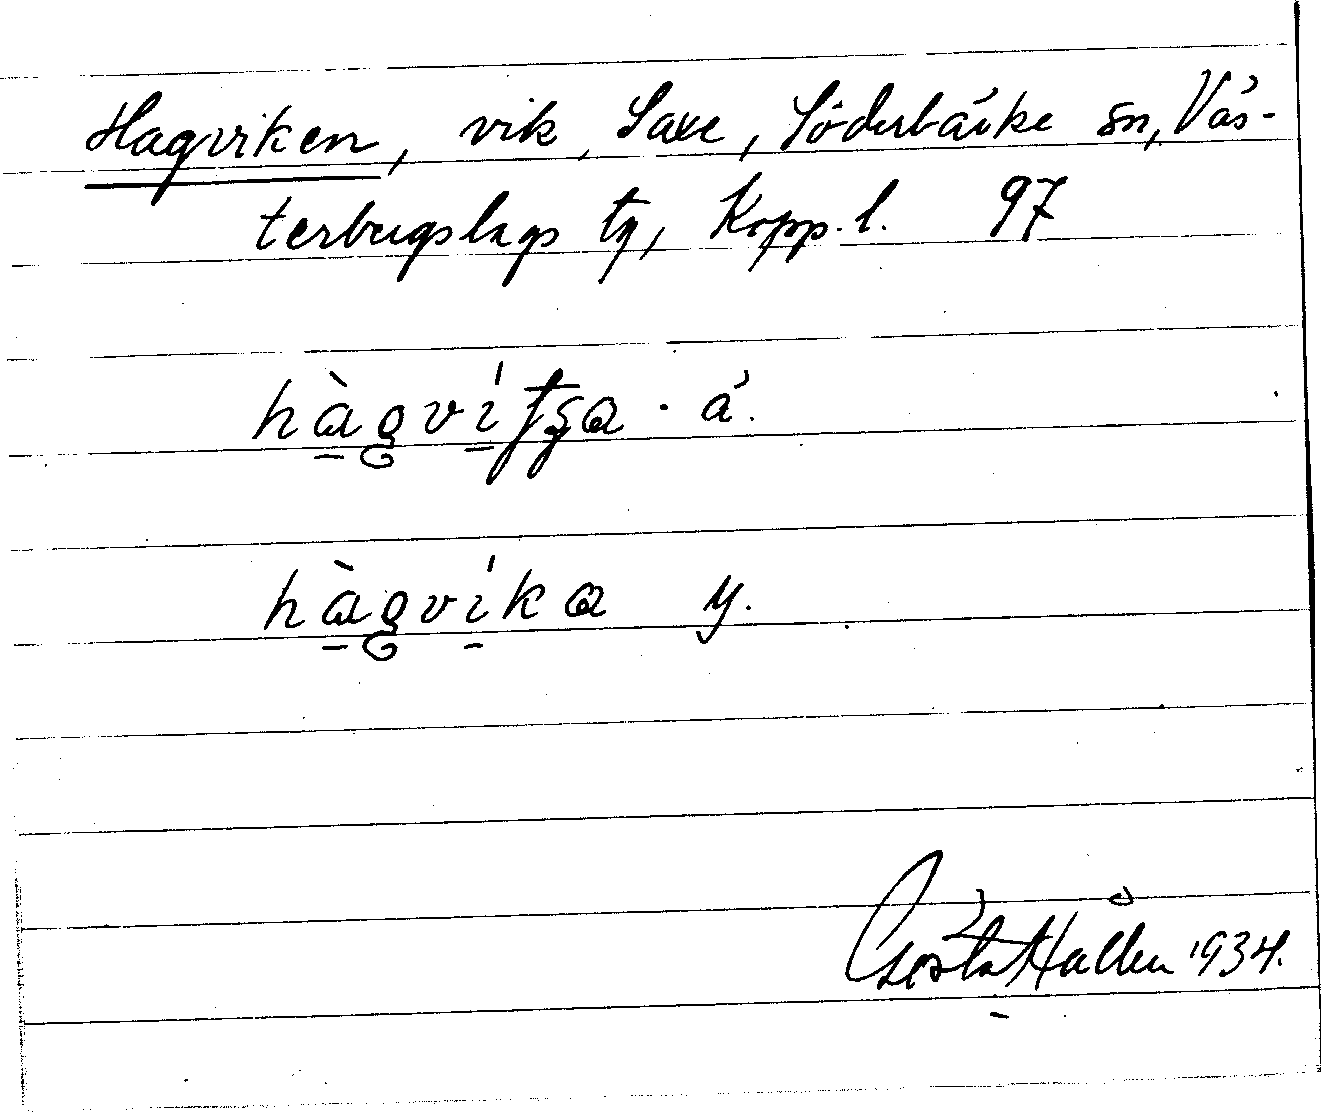 Hagviken, vik, Saxe, Söderbärke sn, Väs-
terbergslags tg, Kopp. l. 97
hàgvítʂa · ä.
hàgvíka y.
Gösta Hallén 1934.